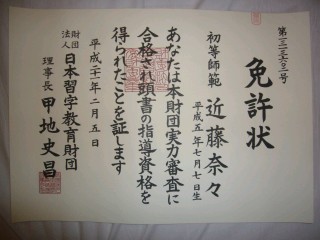 第一三三六三二号
免許状
初等師範
近藤奈々
平成五年七月七日生
あなたは本財団実力審査に
合格され頭書の指導資格を
得られたことを証します
平成二十一年二月五日
財団法人
日本習字教育財団
理事長
甲地史昌